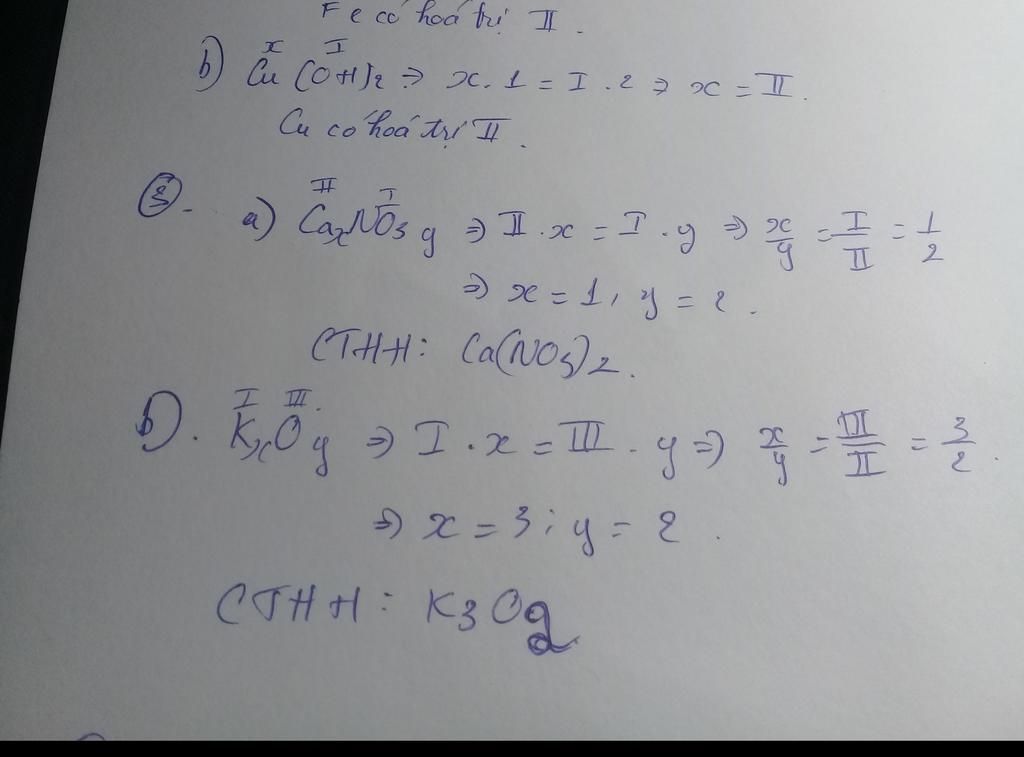 Fe có hoá trị II.
x I
b) Cu(OH)2 => x.1 = I.2 => x = II.
Cu có hoá trị II.
3.
II I
a) CaxNO3y => II.x = I.y => x/y = I/II = 1/2
=> x = 1, y = 2.
CTHH: Ca(NO3)2.
I III.
b). KxOy => I.x = III.y => x/y = III/II = 3/2.
=> x = 3; y = 2.
CTHH: K3O2